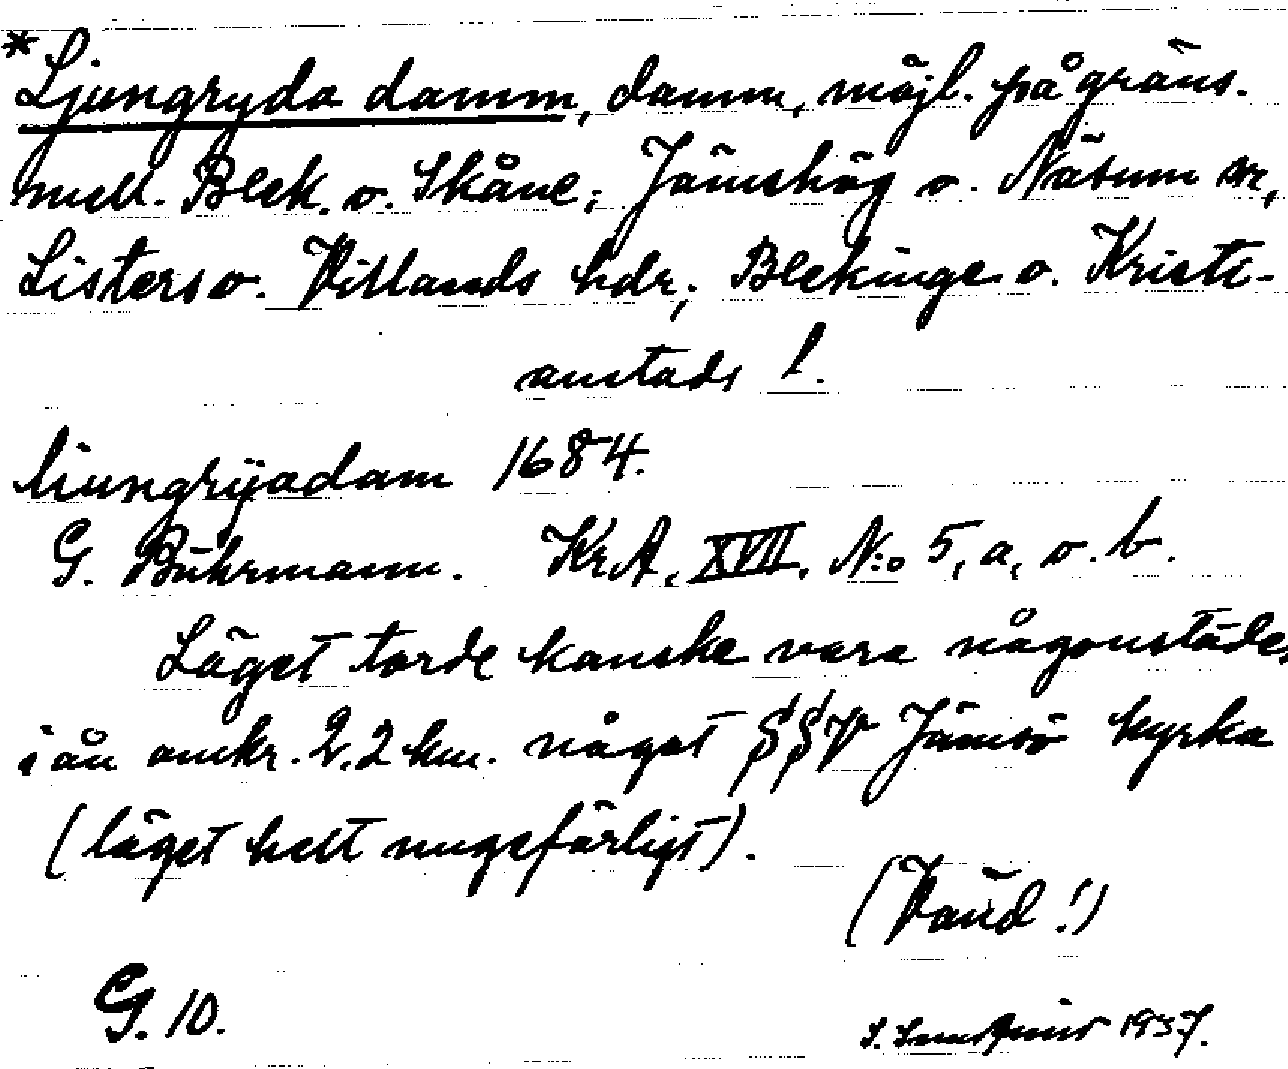 *Ljungryda damm, damm, möjl. på gräns.
mell. Blek. o. Skåne; Jämshög o. Näsum snr,
Listers o. Villands hdr; Blekinge o. Kristi-
anstads l.
Liungrÿadam 1684.
G. Buhrmann. KrA, XVII, N:o 5, a, o. b.
Läget torde kanske vara någonstädes
i ån omkr. 2,2 km. något SSV Jämsö kyrka
(läget helt ungefärligt).
(Vänd!)
G. 10.
S. 1937.